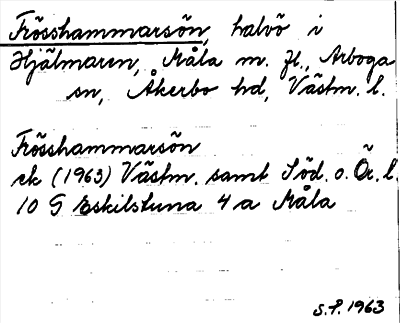 Frösshammarsön, halvö i
Hjälmaren, Måla m. fl., Arboga
sn, Åkerbo hd, Västm. l.
Frösshammarsön
ek (1963) Västm. samt Söd. o. Ör. l.
10 G Eskilstuna 4 a Måla
S.F. 1963